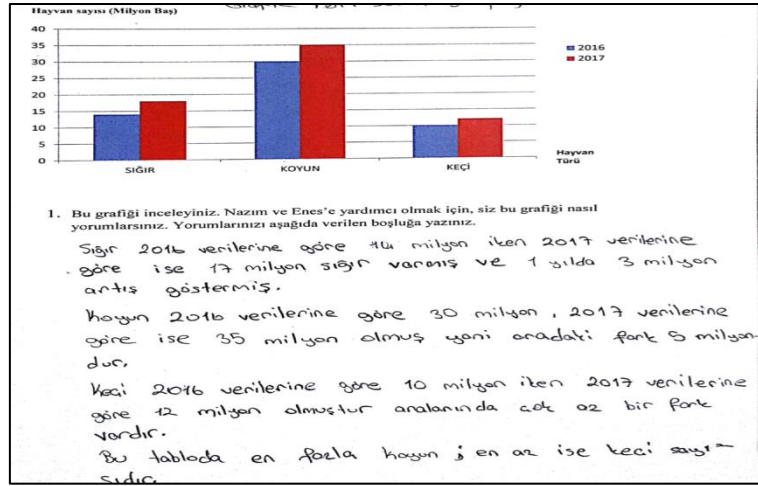 Hayvan sayısı (Milyon Baş)
40
35
30
25
20
15
10
5
0
SIĞIR
KOYUN
KEÇİ
2016
2017
Hayvan
Türü
1. Bu grafiği inceleyiniz. Nazım ve Enes'e yardımcı olmak için, siz bu grafiği nasıl
yorumlarsınız. Yorumlarınızı aşağıda verilen boşluğa yazınız.
Sığır 2016 verilerine göre 14 milyon iken 2017 verilerine
göre ise 17 milyon sığır varmış ve 1 yılda 3 milyon
artış göstermiş.
Koyun 2016 verilerine göre 30 milyon, 2017 verilerine
göre ise 35 milyon olmuş yani aradaki fark 5 milyon-
dur.
Keçi 2016 verilerine göre 10 milyon iken 2017 verilerine
göre 12 milyon olmuştur aralarında çok az bir fark
vardır.
Bu tabloda en fazla koyun ; en az ise keçi sayı-
sıdır.